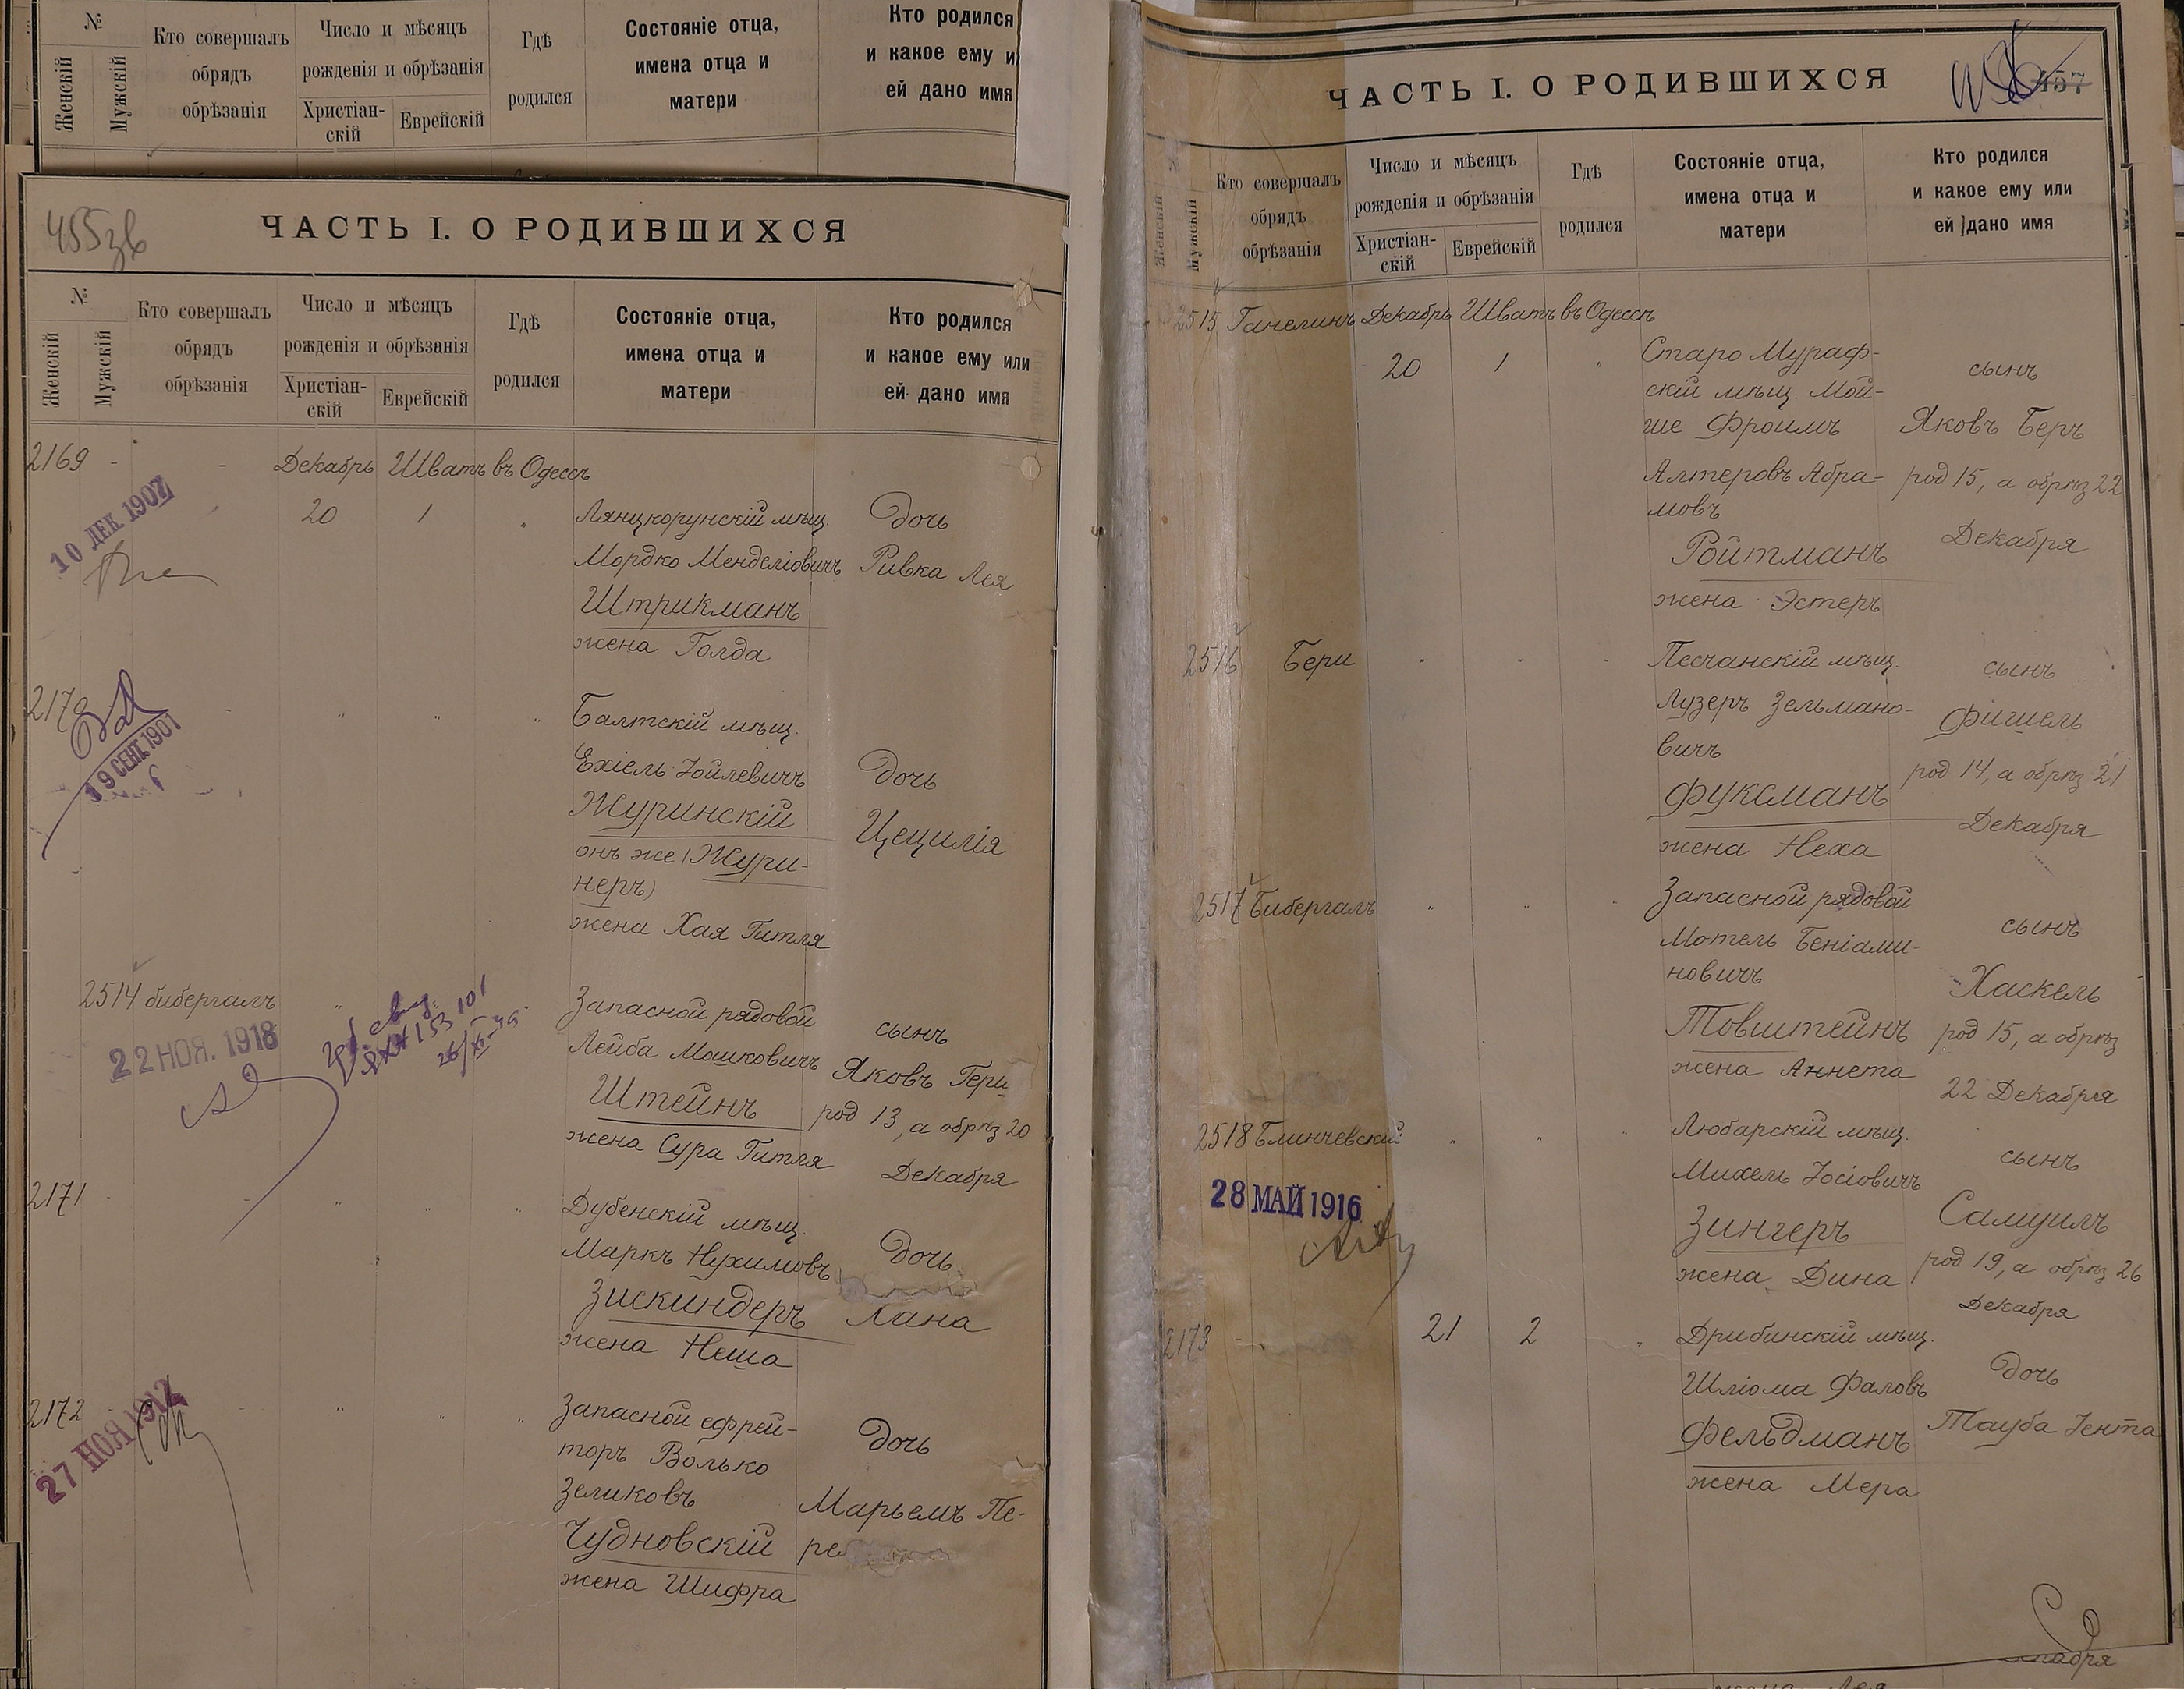 №
Женскій
Мужскій
Кто совершалъ
обрядъ
обрѣзанія
Число и мѣсяцъ
рожденія и обрѣзанія
Христіан-
скій
Еврейскій
Гдѣ
родился
Состояніе отца,
имена отца и
матери
Кто родился
и какое ему и
ей дано имя
455 зв
ЧАСТЬ I. О РОДИВШИХСЯ
№
Женскій
Мужскій
Кто совершалъ
обрядъ
обрѣзанія
Число и мѣсяцъ
рожденія и обрѣзанія
Христіан-
скій
Еврейскій
Гдѣ
родился
Состояніе отца,
имена отца и
матери
Кто родился
и какое ему или
ей дано имя
2169 - - Декабрь Шватъ въ Одессѣ
10 ДЕК 1907
20 1 "
Лянцкорунскій мѣщ.
Мордко Менделіовичъ
Штрикманъ
жена Голда
Дочь
Ривка Лея
2170 - " " "
19 СЕНТ. 1901
Балтскій мѣщ.
Ехіель Іойлевичъ
Журинскій
онъ же (Жури-
неръ)
жена Хая Гитля
Дочь
Цецилія
2514 Бибергалъ " "
22 НОЯ. 1918
Запасной рядовой
Лейба Мошковичъ
Штейнъ
жена Сура Гитля
сынъ
Яковъ Герш
род 13, а обрѣз 20
Декабря
2171 - - " " "
Дубенскій мѣщ.
Маркъ Нухимовъ
Зискиндеръ
жена Неша
Дочь
Хана
2172 - - " " "
27 НОЯ 1912
Запасной ефрей-
торъ Волько
Зеликовъ
Чудновскій
жена Шифра
Дочь
Марьемъ Пе-
ре
ЧАСТЬ I. О РОДИВШИХСЯ
457
№
Женскій
Мужскій
Кто совершалъ
обрядъ
обрѣзанія
Число и мѣсяцъ
рожденія и обрѣзанія
Христіан-
скій
Еврейскій
Гдѣ
родился
Состояніе отца,
имена отца и
матери
Кто родился
и какое ему или
ей дано имя
2515 Ганелинъ Декабрь Шватъ въ Одессѣ
20 1 "
Старо Мураф-
скій мѣщ. Мой-
ше Фроимъ
Алтеровъ Абра-
мовъ
Ройтманъ
жена Эстеръ
сынъ
Яковъ Беръ
род 15, а обрѣз 22
Декабря
2516 Бери " " "
Песчанскій мѣщ.
Лузеръ Зельмано-
вичъ
Фуксманъ
жена Неха
сынъ
Фишель
род 14, а обрѣз 21
Декабря
2517 Бибергалъ " " "
Запасной рядовой
Мотель Беніами-
новичъ
Товштейнъ
жена Аннета
сынъ
Хаскель
род 15, а обрѣз
22 Декабря
2518 Блинчевскій " " "
28 МАЙ 1916
Любарскій мѣщ.
Михель Іосіовичъ
Зингеръ
жена Дина
сынъ
Самуилъ
род 19, а обрѣз 26
Декабря
2173 - 21 2 "
Дрибинскій мѣщ.
Шліома Фаловъ
Фельдманъ
жена Мера
Дочь
Тауба Іента